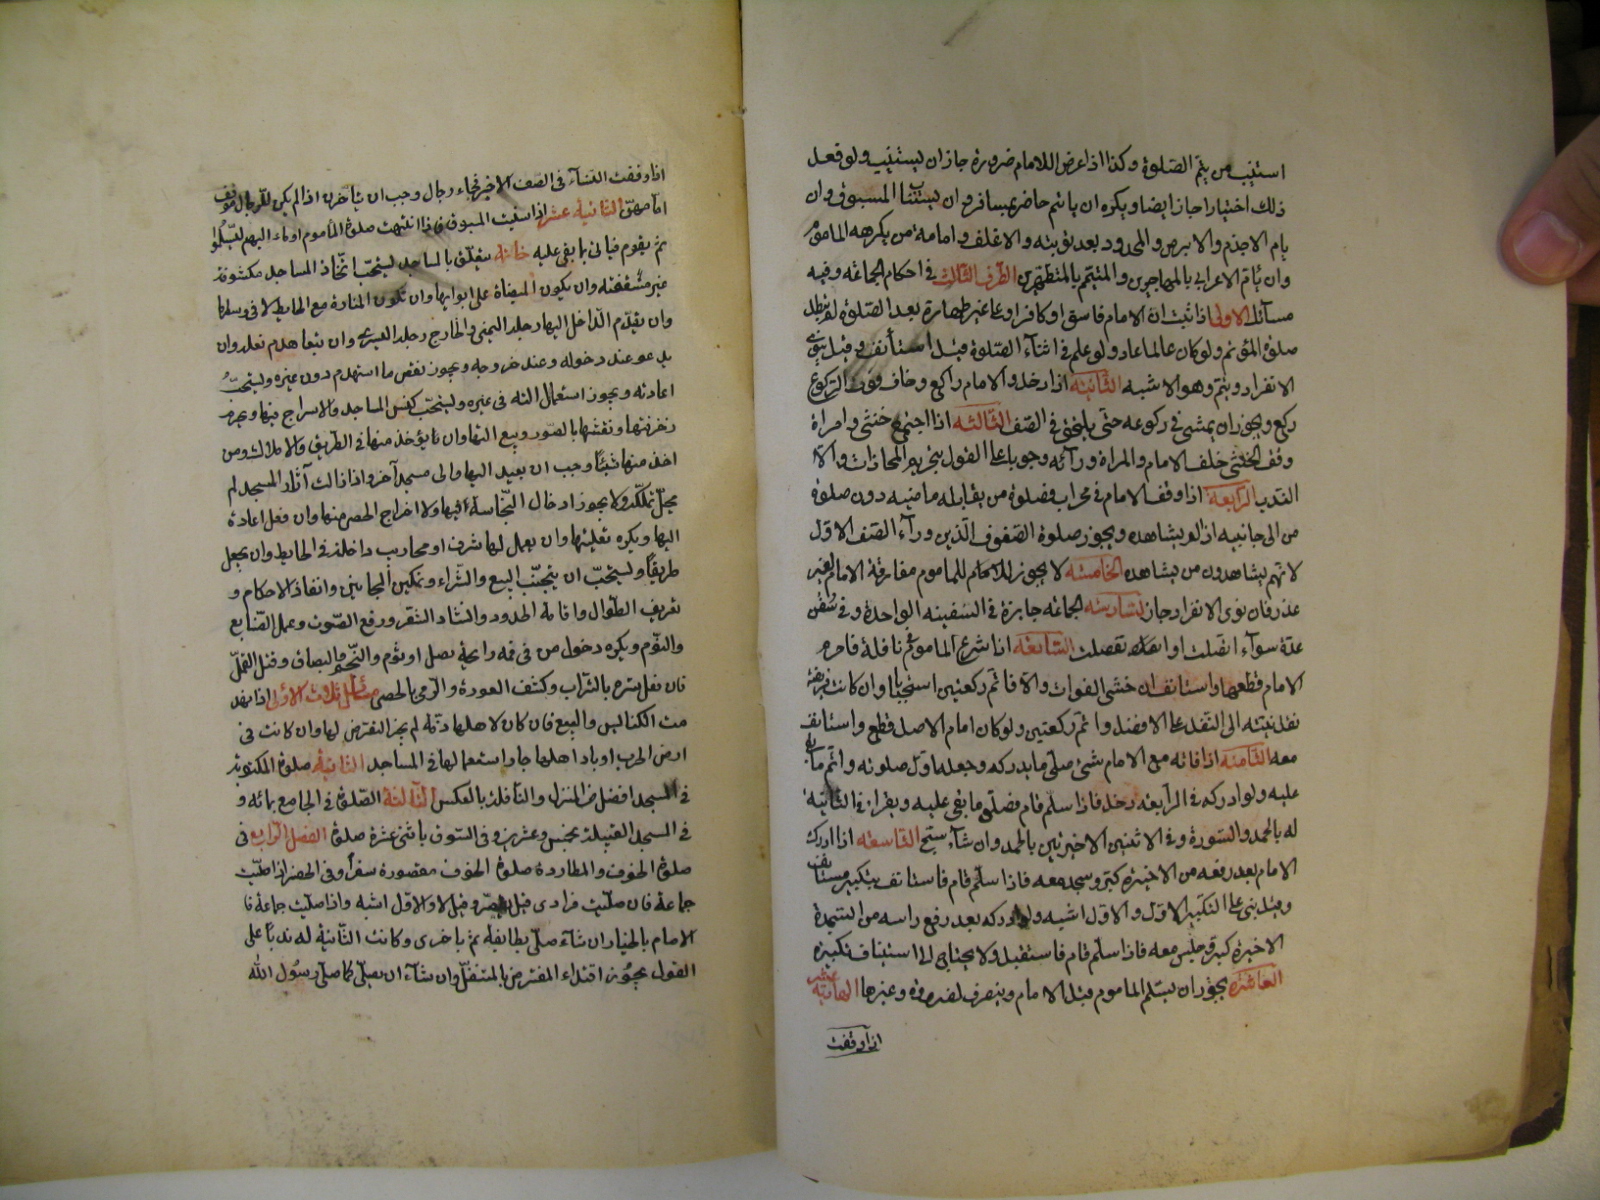 استنيب من يتم الصلوة وكذا اذا عرض للامام ضرورة جاز ان يستنيب ولو فعل
ذلك اختيارا جاز ايضا ويكره ان ياتم حاضر بمسافر وان يستناب المسبوق وان
يام الاجذم والابرص والمحدود بعد توبته والاغلف وامامة من يكرهه المامون
وان يام الاعرابي بالمهاجرين والمتيمم بالمتطهرين الطرف الثالث في احكام الجماعة وفيه
مسائل الاولى اذا ثبت ان الامام فاسق او كافر او على غير طهارة بعد الصلوة لم تبطل
صلوة المؤتم ولو كان عالما عاد ولو علم في اثناء الصلوة قيل استأنف وقيل ينوي
الانفراد ويتم وهو الاشبه الثانية اذا دخل والامام راكع وخاف فوت الركوع
ركع ويجوز ان يمشي في ركوعه حتى يلتحق في الصف الثالثة اذا اجتمع خنثى وامراة
وقف الخنثى خلف الامام والمراة ورائه وجوبا على القول بتحريم المحاذات والا
الندب الرابعة اذا وقف الامام في محراب فصلوة من يقابله ماضية دون صلوة
من الى جانبيه اذا لم يشاهده ويجوز صلوة الصفوف الذين وراء الصف الاول
لانهم يشاهدون من يشاهده الخامسة لا يجوز للمأموم مفارقة الامام لغير
عذر فان نوى الانفراد جاز السادسة الجماعة جايزة في السفينة الواحدة وفي سفن
عدة سواء اتصلت او انفصلت السابعة اذا شرع الماموم في نافلة فاحرم
الامام قطعها واستانف ان خشي الفوات والا فاتم ركعتين استحبابا وان كانت فريضة
نقل نيته الى النفل على الافضل واتم ركعتين ولو كان امام الاصل قطع واستانف
معه الثامنة اذا فاته مع الامام شئ صلى ما يدركه وجعله اول صلوته واتم ما بقي
عليه ولو ادركه في الرابعة دخل فاذا سلم قام فصلى ما بقي عليه ويقرأ في الثانية
له بالحمد والسورة وفي الاثنين الاخيرتين بالحمد وان شاء سبح التاسعة اذا ادرك
الامام بعد رفعه من الاخيرة كبر وسجد معه فاذا سلم قام فاستانف بتكبير مستانف
وقيل بنى على التكبير الاول والاول اشبه ولو ادركه بعد رفع راسه من السجدة
الاخيرة كبر وجلس معه فاذا سلم قام فاستقبل ولا يحتاج الى استيناف تكبيرة
العاشرة يجوز ان يسلم الماموم قبل الامام وينصرف لضرورة وغيرها الحادية عشر
اذا وقفت
اذا وقفت النساء في الصف الاخير فجاء رجال وجب ان يتأخرن اذا لم يكن للرجال موقف
امامهن الثانية عشر اذا استنيب المسبوق فاذا انتهت صلوة المأموم اوماء اليهم ليسلموا
ثم يقوم فياتى بما بقي عليه خاتمة يتعلق بالمساجد يستحب اتخاذ المساجد مكشوفة
غير مسقفة وان يكون الميضاة على ابوابها وان تكون المنارة مع الحايط لا في وسطها
وان يقدم الداخل اليها رجله اليمنى والخارج رجله اليسرى وان يتعاهد نعله وان
يدعو عند دخوله وعند خروجه ويجوز نقض ما استهدم دون غيره ويستحب
اعادته ويجوز استعمال الته في غيره ويستحب كنس المساجد والاسراج فيها ويحرم
زخرفتها ونقشها بالصور وبيع التها وان يؤخذ منها في الطريق والاملاك ومن
اخذ منها شيئا وجب ان يعيد اليها والى مسجد آخر واذا زالت آثار المسجد لم
يحل تملكه ولا يجوز ادخال النجاسة اليها ولا اخراج الحصى منها وان فعل اعاده
اليها ويكره تعليتها وان يعمل لها شرف او محاريب داخلة في الحايط وان يجعل
طريقا ويستحب ان يتجنب البيع والشراء وتمكين المجانين وانفاذ الاحكام و
تعريف الضوال واقامة الحدود وانشاد الشعر ورفع الصوت وعمل الصنايع
والنوم ويكره دخول من في فمه رايحة بصل او ثوم والتنخم والبصاق وقتل القمل
فان فعل ستره بالتراب وكشف العورة والرمي بالحصى مسائل ثلاث الاولى اذا انهد
مت الكنايس والبيع فان كان لاهلها ذمة لم يجز التعرض لها وان كانت في
ارض الحرب او باد اهلها جاز استعمالها في المساجد الثانية صلوة المكتوبة
في المسجد افضل من المنزل والنافلة بالعكس الثالثة الصلوة في الجامع بمائة و
في المسجد القبيلة بخمس وعشرين وفي السوق باثنى عشرة صلوة الفصل الرابع في
صلوة الخوف والمطاردة صلوة الخوف مقصورة سفرا وفي الحضر اذا صليت
جماعة فان صليت فرادى قيل يقصر وقيل لا والاول اشبه واذا صليت جماعة فا
لامام بالخيار ان شاء صلى بطايفة ثم باخرى وكانت الثانية له ندبا على
القول بجواز اقتداء المفترض بالمتنفل وان شاء ان يصلى كما صلى رسول الله